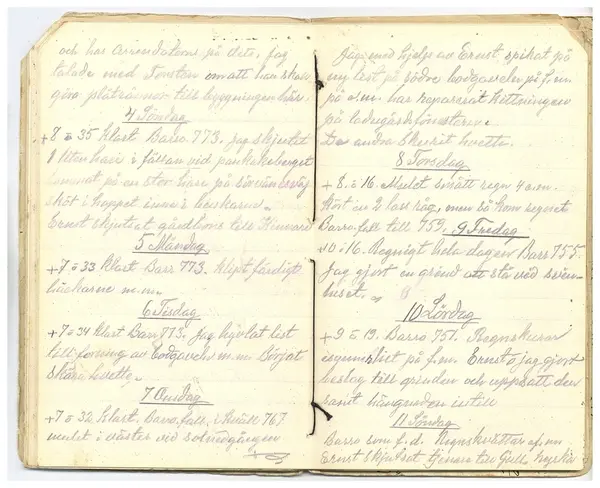 och har arrendatorns på Ikto, Jag
talade med Torsten om att han skall
göra plåtrännor till byggningen här.
4 Söndag
+8 o 35 Klast Barro. 773. Jag skjutet
1 liten hare i fällan vid pankakeberget
kommit på en stor hare på
sköt i hoppet inne i buskarne.
Ernst skjutsat gårdhems till
5 Måndag
+7 o 33 Klast Barr 773. Klipt färdigt
häckarne m.m.
6 Tisdag
+7 o 34 Klast Barr 773. Jag hyvlat list
till forning av Bodgaveln m.m. Börjat
skära hvete.
7 Onsdag
+7 o 32 Klast. Baro. fall. i kväll 767
mulet i väster vid solnedgången
Jag med hjelp av Ernst, spikat på
ny list på södre bodgaveln på f.m.
på e.m. har reparerat kittningen
på ladugårdsfönstren.
De andra skurit hvete.
8 Torsdag
+8 o 16. Mulet smått regn 4 e.m.
Kört in 2 lass råg, men så kom regnet
Barro. fall till 759.
9 Fredag
+10 o 16. Regnigt hela dagen Barr 755
Jag gjort en grind att sta vid svin-
huset.
10 Lördag
+9 o 19. Barro 751. Regnskurar
isynnerhet på f.m. Ernst o jag gjort
beslag till grinden och uppsatt den
samt hängt den
11 Söndag
Barro som f.d. Regnskvättar e.m.
Ernst skjutsat